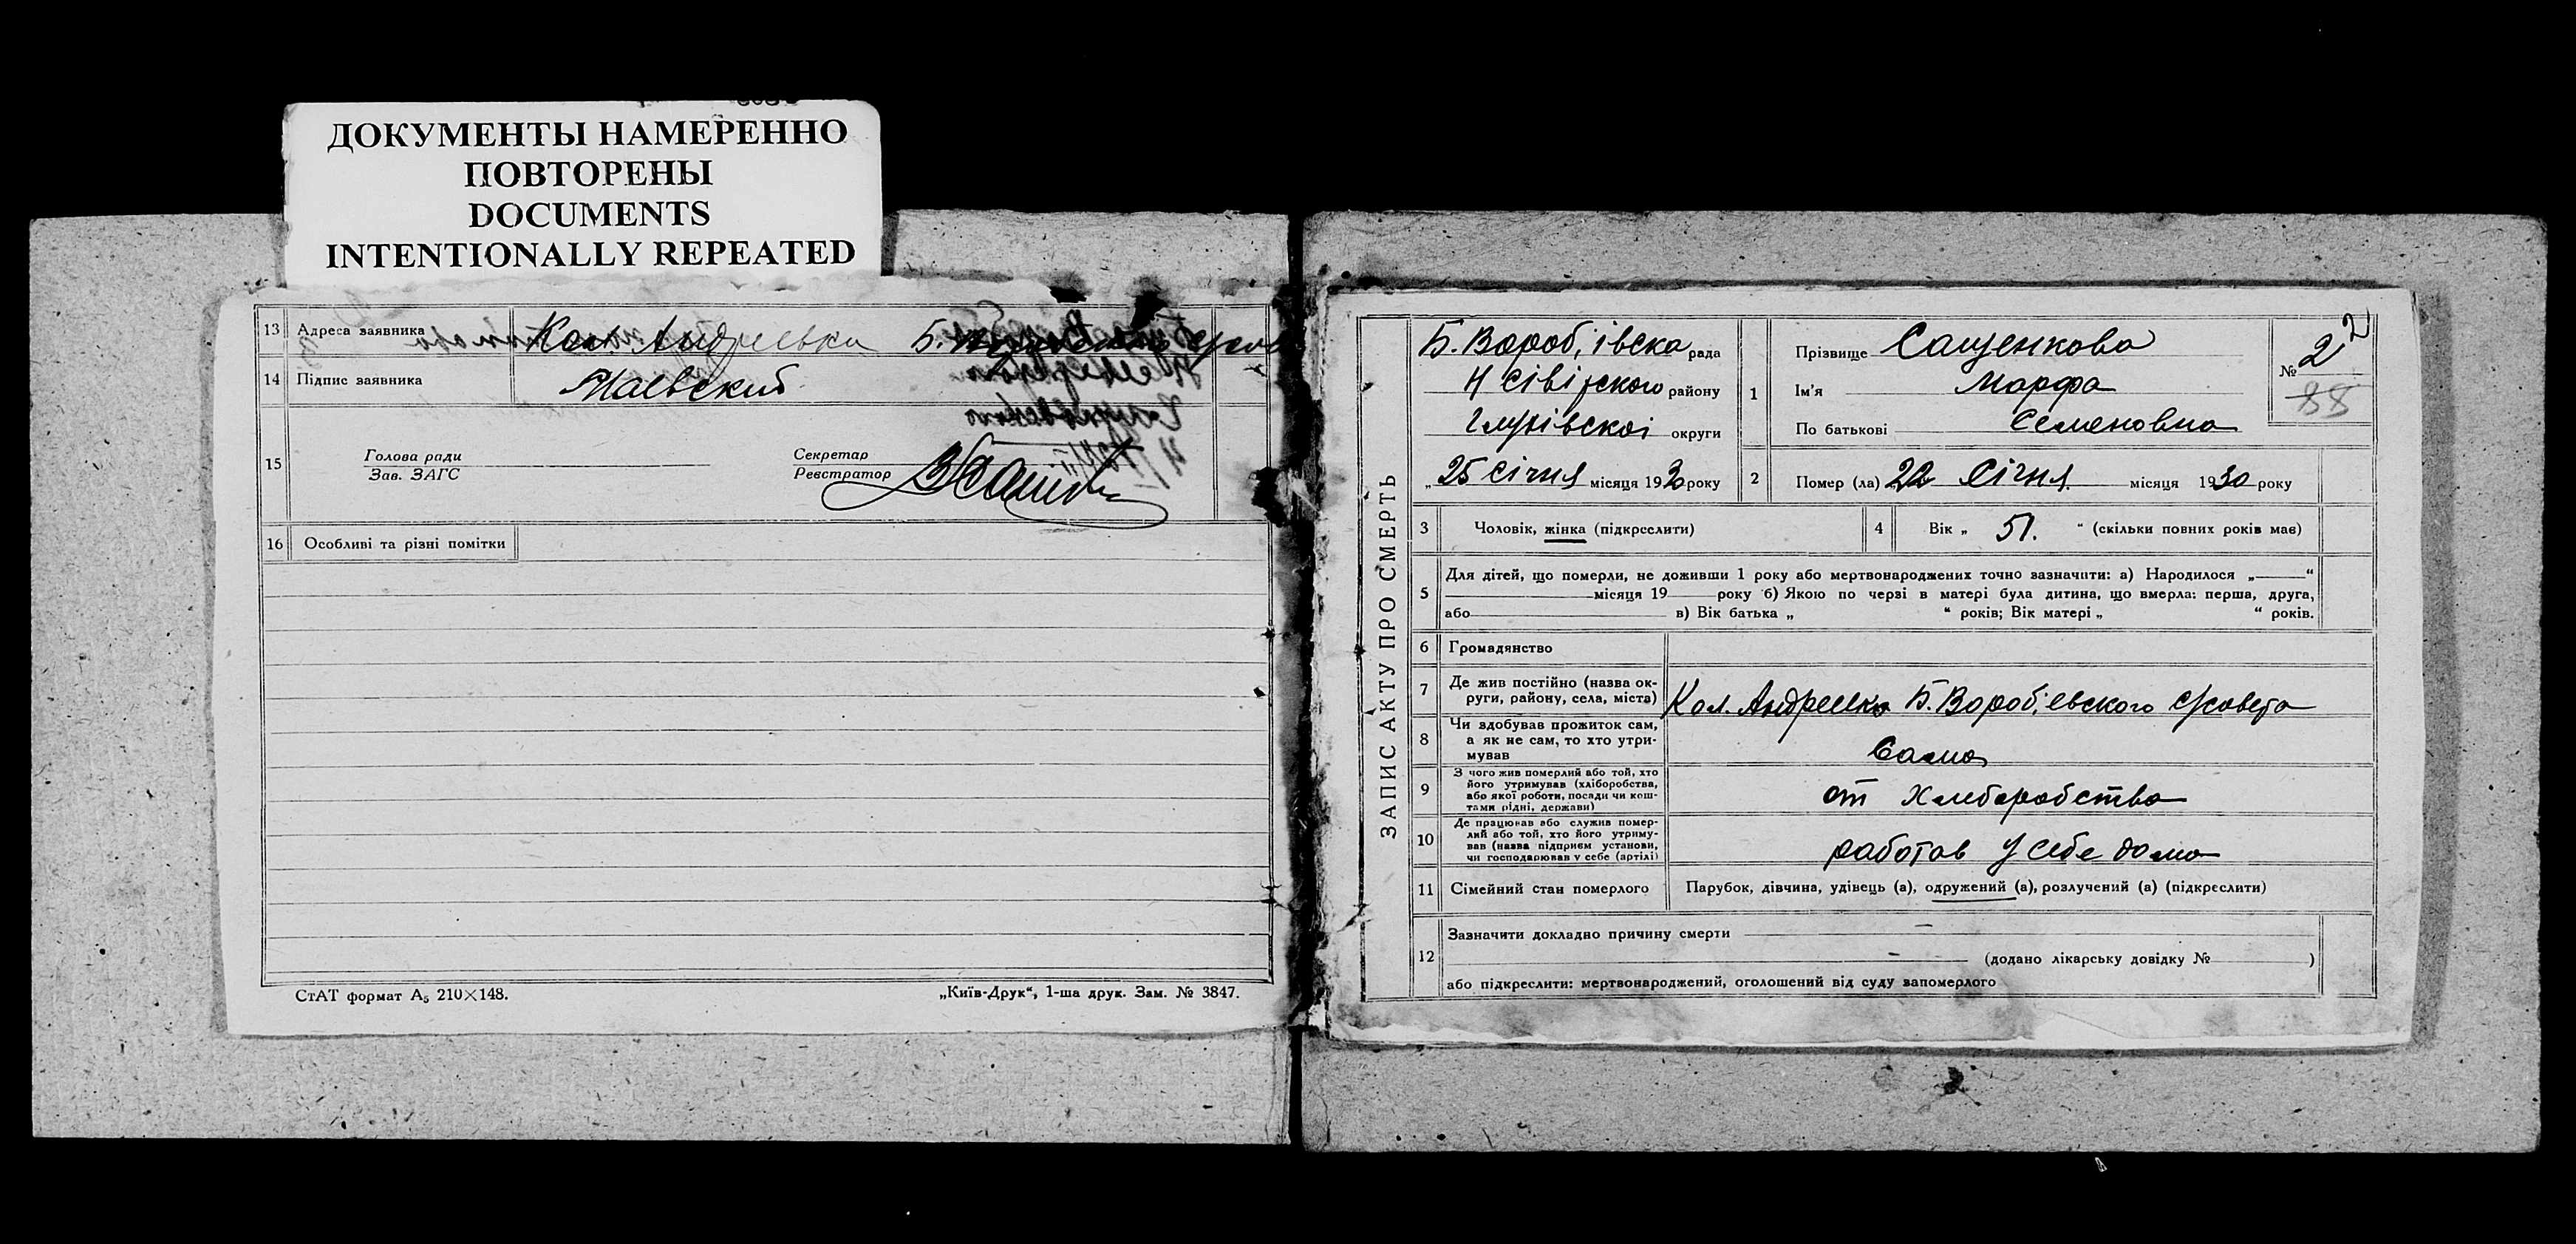 ДОКУМЕНТЫ НАМЕРЕННО
ПОВТОРЕНЫ
DOCUMENTS
INTENTIONALLY REPEATED
13 Адреса заявника Кол. Андреевка Б.
14 Підпис заявника Маевский
15 Голова ради
Зав. ЗАГС
Секретар
Реєстратор
16 Особливі та різні помітки
СтАТ формат А₅ 210×148.
„Київ-Друк“, 1-ша друк. Зам. № 3847.
ЗАПИС АКТУ ПРО СМЕРТЬ
Б. Вороб,івска рада
Н Сівірского району
Глухівскоі округи
„25 Січня місяця 1930 року
1 Прізвище Сащенкова
Ім’я Марфа
По батькові Семеновна
№ 2
2
88
2 Помер (ла) 22 Січня місяця 1930 року
3 Чоловік, жінка (підкреслити)
4 Вік „ 51. “ (скільки повних років має)
5 Для дітей, що померли, не доживши 1 року або мертвонароджених точно зазначити: а) Народилося „ “
місяця 19 року б) Якою по черзі в матері була дитина, що вмерла: перша, друга,
або в) Вік батька „ “ років; Вік матері „ “ років.
6 Громадянство
7 Де жив постійно (назва ок-
руги, району, села, міста) Кол. Андреевка Б. Вороб,евского с/совета
8 Чи здобував прожиток сам,
а як не сам, то хто утри-
мував Сама
9 З чого жив померлий або той, хто
його утримував (хліборобства,
або якої роботи, посади чи кош-
тами рідні, держави) от Хлеборобства
10 Де працював або служив помер-
лий або той, хто його утриму-
вав (назва підприєм установи,
чи господарював у себе (артілі) работав у себе дома
11 Сімейний стан померлого Парубок, дівчина, удівець (а), одружений (а), розлучений (а) (підкреслити)
12 Зазначити докладно причину смерти —
— (додано лікарську довідку № )
або підкреслити: мертвонароджений, оголошений від суду запомерлого